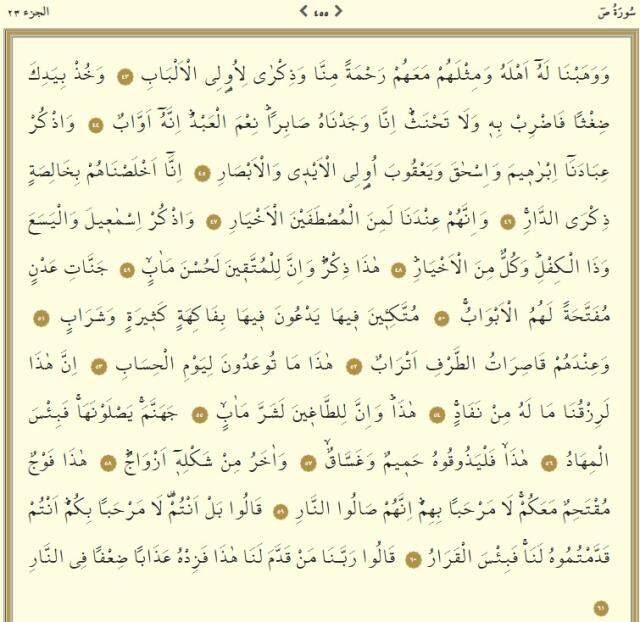 سُورَةُ صٓ ٤٥٥ الجزء ٢٣
وَوَهَبْنَا لَهُٓ اَهْلَهُ وَمِثْلَهُمْ مَعَهُمْ رَحْمَةً مِنَّا وَذِكْرٰى لِاُو۬لِى الْاَلْبَابِ ٤٣ وَخُذْ بِيَدِكَ
ضِغْثًا فَاضْرِبْ بِه۪ وَلَا تَحْنَثْۜ اِنَّا وَجَدْنَاهُ صَابِرًاۜ نِعْمَ الْعَبْدُۜ اِنَّهُٓ اَوَّابٌ ٤٤ وَاذْكُرْ
عِبَادَنَٓا اِبْرٰه۪يمَ وَاِسْحٰقَ وَيَعْقُوبَ اُو۬لِى الْاَيْد۪ى وَالْاَبْصَارِ ٤٥ اِنَّٓا اَخْلَصْنَاهُمْ بِخَالِصَةٍ
ذِكْرَى الدَّارِۚ ٤٦ وَاِنَّهُمْ عِنْدَنَا لَمِنَ الْمُصْطَفَيْنَ الْاَخْيَارِ ٤٧ وَاذْكُرْ اِسْمٰع۪يلَ وَالْيَسَعَ
وَذَا الْكِفْلِۜ وَكُلٌّ مِنَ الْاَخْيَارِۜ ٤٨ هٰذَا ذِكْرٌۜ وَاِنَّ لِلْمُتَّق۪ينَ لَحُسْنَ مَاٰبٍۙ ٤٩ جَنَّاتِ عَدْنٍ
مُفَتَّحَةً لَهُمُ الْاَبْوَابُۚ ٥٠ مُتَّكِـ۪ٔينَ ف۪يهَا يَدْعُونَ ف۪يهَا بِفَاكِهَةٍ كَث۪يرَةٍ وَشَرَابٍ ٥١
وَعِنْدَهُمْ قَاصِرَاتُ الطَّرْفِ اَتْرَابٌ ٥٢ هٰذَا مَا تُوعَدُونَ لِيَوْمِ الْحِسَابِ ٥٣ اِنَّ هٰذَا
لَرِزْقُنَا مَا لَهُ مِنْ نَفَادٍۚ ٥٤ هٰذَاۜ وَاِنَّ لِلطَّاغ۪ينَ لَشَرَّ مَاٰبٍۙ ٥٥ جَهَنَّمَۚ يَصْلَوْنَهَاۚ فَبِئْسَ
الْمِهَادُ ٥٦ هٰذَاۙ فَلْيَذُوقُوهُ حَم۪يمٌ وَغَسَّاقٌۙ ٥٧ وَاٰخَرُ مِنْ شَكْلِه۪ٓ اَزْوَاجٌۜ ٥٨ هٰذَا فَوْجٌ
مُقْتَحِمٌ مَعَكُمْۚ لَا مَرْحَبًا بِهِمْۜ اِنَّهُمْ صَالُوا النَّارِ ٥٩ قَالُوا بَلْ اَنْتُمْ۠ لَا مَرْحَبًا بِكُمْۜ اَنْتُمْ
قَدَّمْتُمُوهُ لَنَاۚ فَبِئْسَ الْقَرَارُ ٦٠ قَالُوا رَبَّنَا مَنْ قَدَّمَ لَنَا هٰذَا فَزِدْهُ عَذَابًا ضِعْفًا فِى النَّارِ
٦١